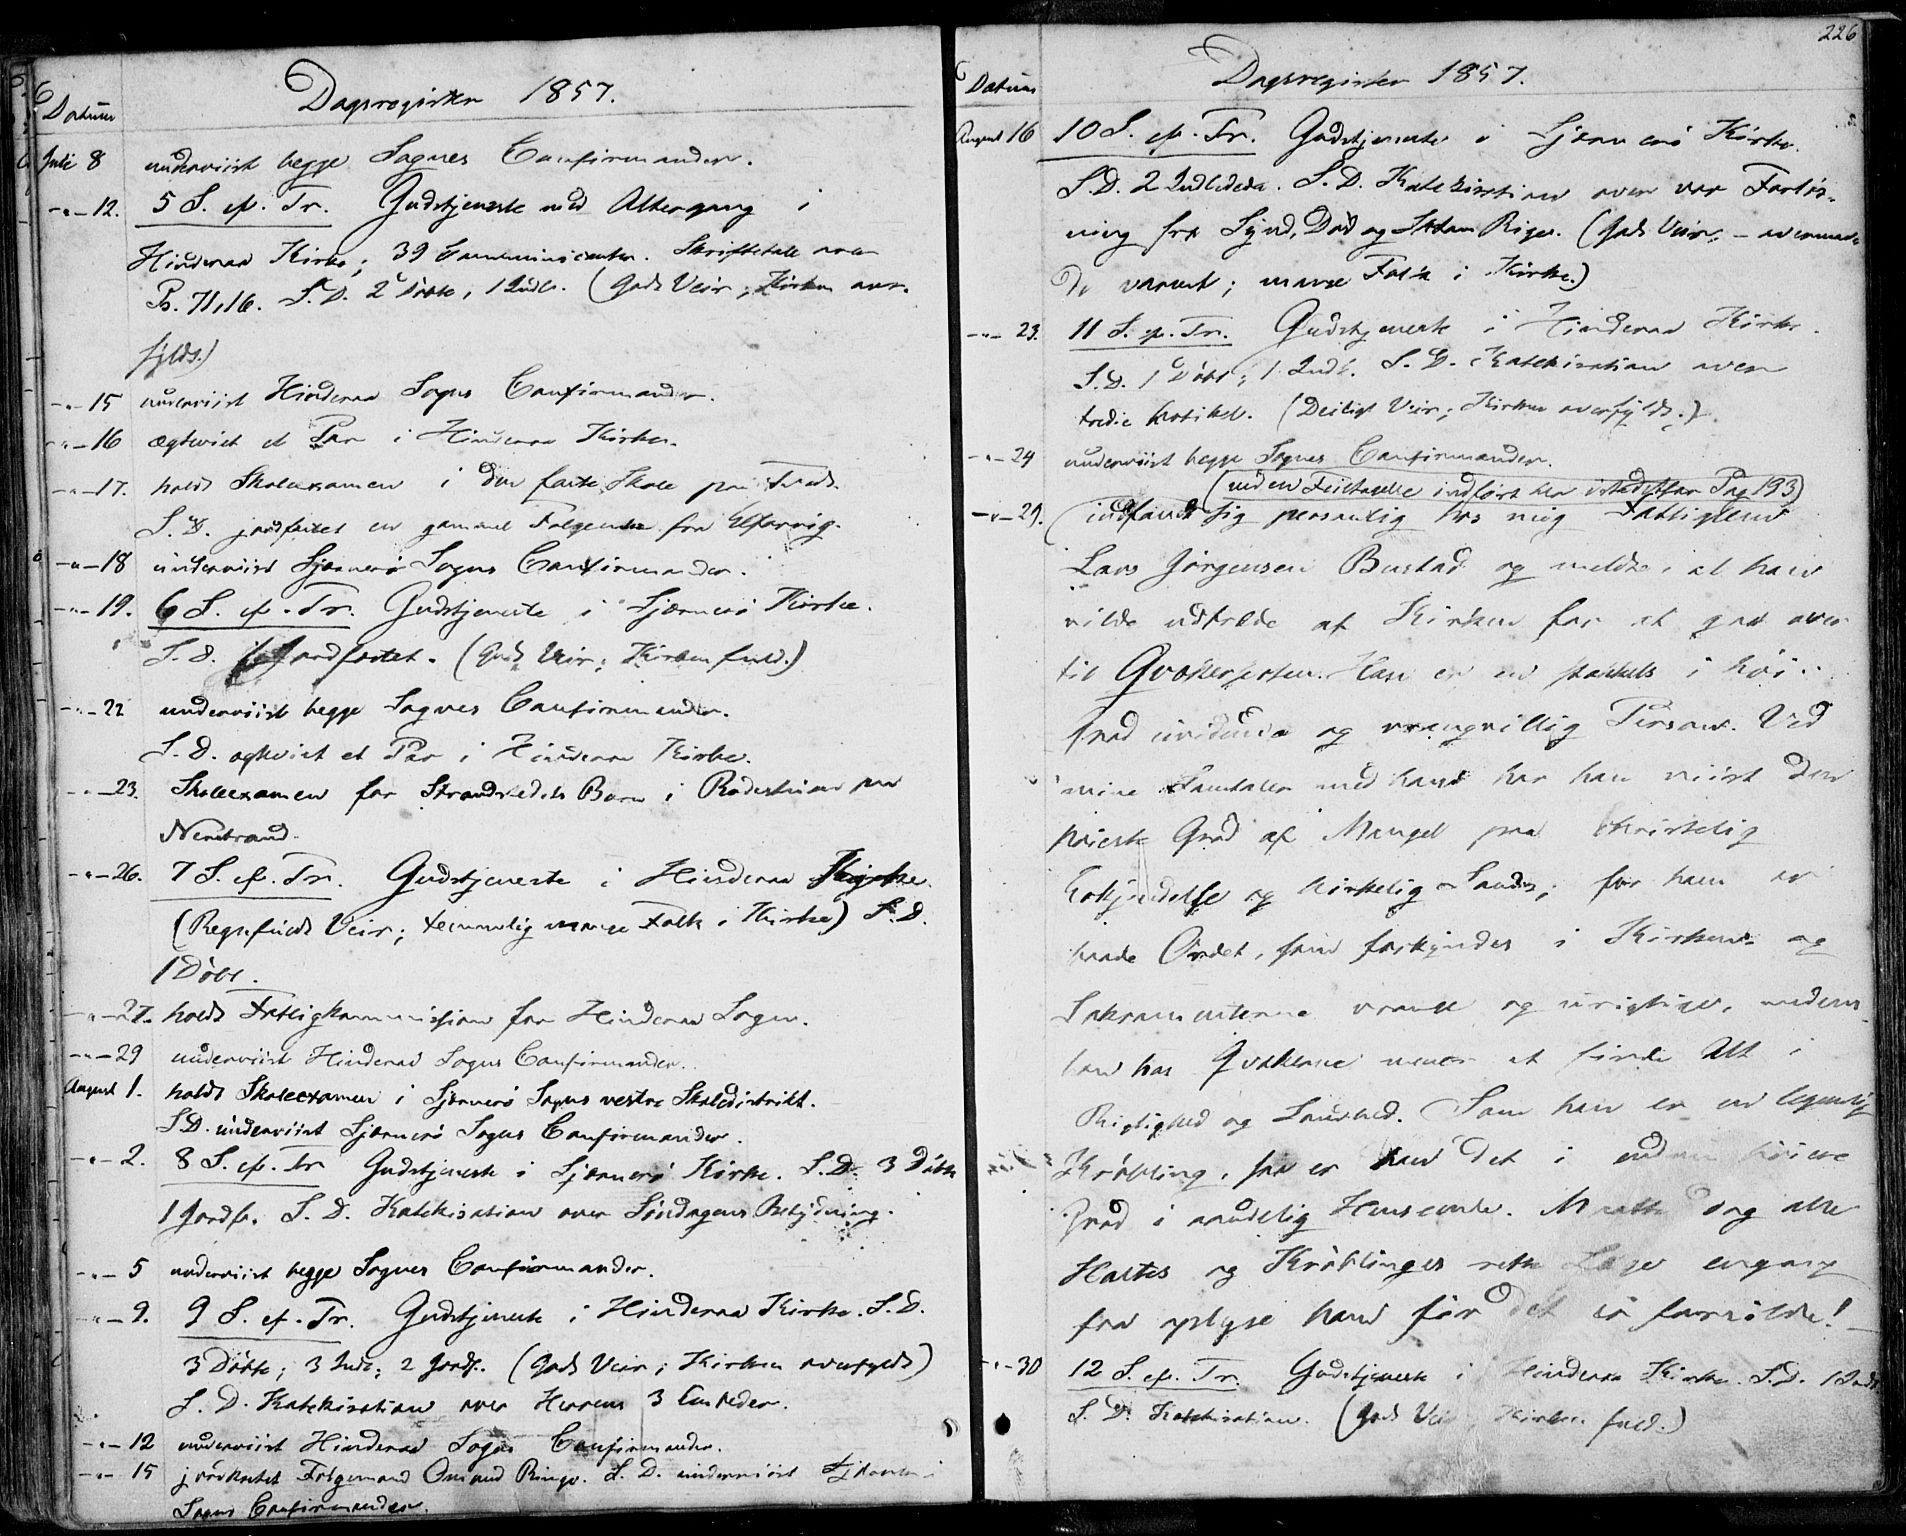 Datum
Dagsregister 1857.
Juli 8 underviist begge Sognes Confirmander.
-"-12. 5 S. ef. Tr. Gudstjeneste med Altergang i
Hinderaa Kirke; 39 Communicanter. Skriftetale over
Ps. 71,16. S. D. 2 Döbte, 1 Indl. (Godt Veir; Kirken over-
fyldt.)
-"-15 underviist Hinderaa Sogns Confirmander.
-"-16 ægteviet et Par i Hinderaa Kirke.
-"-17. holdt Skoleexamen i den faste Skole paa
S. D. jordfæstet en gammel fra
-"-18 underviist Sjærnerö Sogns Confirmander.
-"-19. 6 S. ef. Tr. Gudstjeneste i Sjærnerö Kirke.
S. D. 1 Jordfæstet. (Godt Veir; Kirken fuld.)
-"-22 underviist begge Sognes Confirmander.
S. D. ægteviet et Par i Hinderaa Kirke.
-"-23. Skoleexamen for Strandstedets Børn i paa
Nerstrand.
-"-26. 7 S. ef. Tr. Gudstjeneste i Hinderaa Kirke.
(Regnfuldt Veir; temmelig mange Folk i Kirke) S. D.
1 Döbt.
-"-27. holdt Fattigkommission for Hinderaa Sogn.
-"-29 underviist Hinderaa Sogns Confirmander.
August 1. holdt Skoleexamen i Sjærnerö Sogns vestre Skoledistrikt.
S D. underviist Sjærnerö Sogns Confirmander.
-"-2. 8 S. ef. Tr Gudstjeneste i Sjærnerö Kirke. S. D. 3 Döbte
1 Jordf. S. D. Katekisation over Söndagens Betydning.
-"-5 underviist begge Sognes Confirmander.
-"-9. 9 S. ef. Tr. Gudstjeneste i Hinderaa Kirke. S. D.
3 Döbte; 3 Indl; 2 Jordf. (Godt Veir; Kirken overfyldt)
S. D. Katekisation over Herrens 3 Embeder.
-"-12 underviist Hinderaa Sogns Confirmander.
-"-15 jordfæstet Folgemand Omund Ringe. S. D. underviist
Sogns Confirmander.
226
Datum
Dagsregister 1857.
August 16 10 S. ef. Tr. Gudstjeneste i Sjærnerö Kirke.
S D. 2 Indledede. S. D. Katekisation over vor Forlös-
ning fra Synd, Död og Satans Rige. (Godt Veir, - overmaa-
de varmt; mange Folk i Kirke.)
-"-23. 11 S. ef. Tr. Gudstjeneste i Hinderaa Kirke.
S. D. 1 Döbt; 1 Indl. S. D. Katekisation over
tredie Artikel. (Deiligt Veir; Kirken overfyldt.)
-"-24 underviist begge Sognes Confirmander.
(ved en Feiltagelse indfört her istedetfor Pag 193)
-"-29. indfandt sig personlig hos mig
Lars Jörgensen Bustad og meldte, at han
vilde udtræde af Kirken for at gaa over
til Qvækersekten. Han er en i höi
Grad uvidende og vrangvillig Person. Ved
mine Samtaler med ham har han viist den
höieste Grad af Mangel paa christelig
Erkjendelse og kirkelig Sands; for ham er
baade Ordet, som forkyndes i Kirken og
Sakramenterne og urigtige, medens
han hos Qvækerne mener at finde Alt i
Rigtighed og Sandhed. Som han er en legemlig
Kröbling, saa er han det i endnu höiere
Grad i aandelig Henseende. Maatte dog alle
Haltes og Kröblingers rette Læge engang
faa oplyse ham för det er forsilde!
-"-30 12 S. ef. Tr. Gudstjeneste i Hinderaa Kirke. S. D. 1 Indl.
S. D. Katekisation. (Godt Veir; Kirken fuld.)